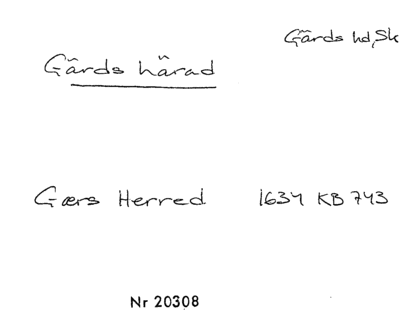 Gärds hd, Sk
Gärds härad
Gærs Herred 1634 KB 743
Nr 20308